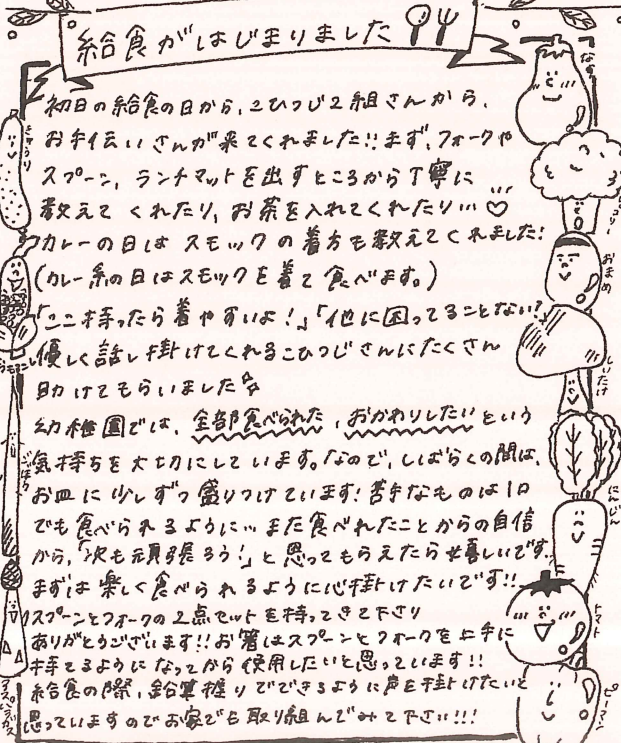 給食がはじまりました
初日の給食の日から、こひつじ2組さんから、
お手伝いさんが来てくれました!!まず、フォークや
スプーン、ランチマットを出すところから丁寧に
教えて くれたり、お茶を入れてくれたり…♡
カレーの日は スモックの着方も教えてくれました!
(カレー系の日はスモックを着て食べます。)
「ここ持ったら着やすいよ!」「他に困ってることない?」
優しく話し掛けてくれるこひつじさんにたくさん
助けてもらいました☆
幼稚園では、全部食べられた、おかわりしたいという
気持ちを大切にしています。なので、しばらくの間は、
お皿に少しずつ盛りつけています!苦手なものは1口
でも食べられるように…また食べれたことからの自信
から、「次も頑張ろう!」と思ってもらえたら嬉しいです。
まずは楽しく食べられるように心掛けたいです!!
スプーンとフォークの2点セットを持ってきて下さり
ありがとうございます!!お箸はスプーンとフォークを上手に
持てるようになってから使用したいと思っています!!
給食の際、鉛筆握りでできるように声を掛けたいと
思っていますのでお家でも取り組んでみて下さい!!!
なす
きゅうり
ブロッコリー
おまめ
とうもろこし
しいたけ
ごぼう
にんじん
トマト
アスパラガス
ピーマン